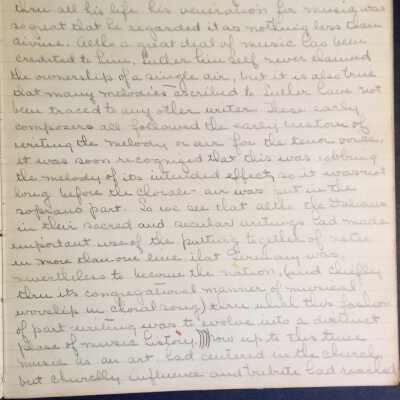 thru all his life his veneration for music was
so great that he regarded it as nothing less than
divine. Altho a great deal of music has been
credited to him, Luther himself never claimed
the ownership of a single air, but it is also true
that many melodies ascribed to Luther have not
been traced to any other writer. These early
composers all followed the early custom of
writing the melody or air for the tenor voice.
it was soon recognized that this was robbing
the melody of its intended effect, so it was not
long before the chorale-air was put in the
soprano part. So we see that altho the Italians
in their sacred and secular writings had made
important use of the putting together of notes
in more than one line, that Germany was
nevertheless to become the nation, (and chiefly
thru its congregational manner of musical
worship in choral song) thru which this fashion
of part-writing was to evolve into a distinct
phase of music history. Now up to this time
music as an art had centered in the church,
but churchly influence and had reached